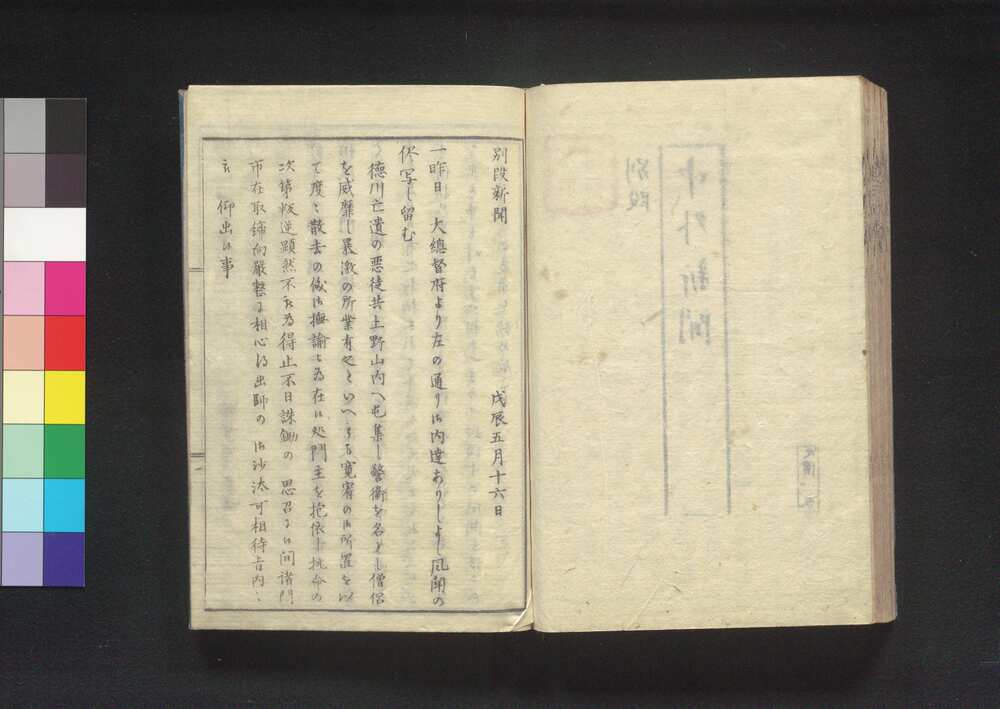 別段新聞　戊辰五月十六日
一昨日大總督府より左の通り御内達ありしよし風聞の
侭写し留む
徳川亡遺の悪徒共上野山内へ屯集し警衛を名とし僧侶
を威靡し暴激の所業有之といへとも寛宥の御所置を以
て度々散去の儀御撫諭被為在候処門主を抱依し抗命の
次第叛逆顕然不被為得止不日誅鋤の　思召に候間諸門
市在取締向厳整に相心得出師の　御沙汰可相待旨内々
被　仰出候事
中外新聞
別段